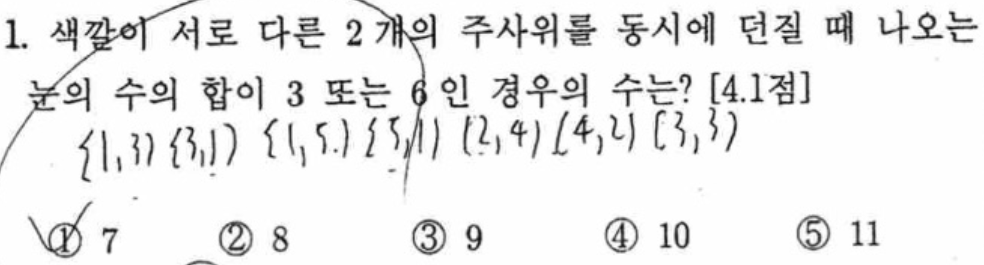 1. 색깔이 서로 다른 2개의 주사위를 동시에 던질 때 나오는
눈의 수의 합이 3 또는 6인 경우의 수는? [4.1점]
{1,3) {3,1) {1,5) {5,1) (2,4) (4,2) (3,3)
① 7 ② 8 ③ 9 ④ 10 ⑤ 11